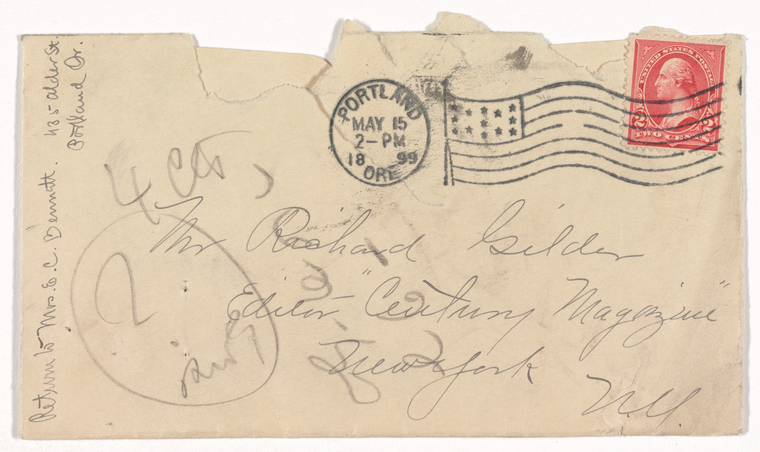 Return to Mrs. E. C. Bennett. 435 Alder St.
Portland Or.
PORTLAND
MAY 15
2-PM
18 99
ORE
UNITED STATES POSTAGE
2 2
TWO CENTS
4 cts
Mr Richard Gilder
Editor "Century Magazine"
New York
N.Y.